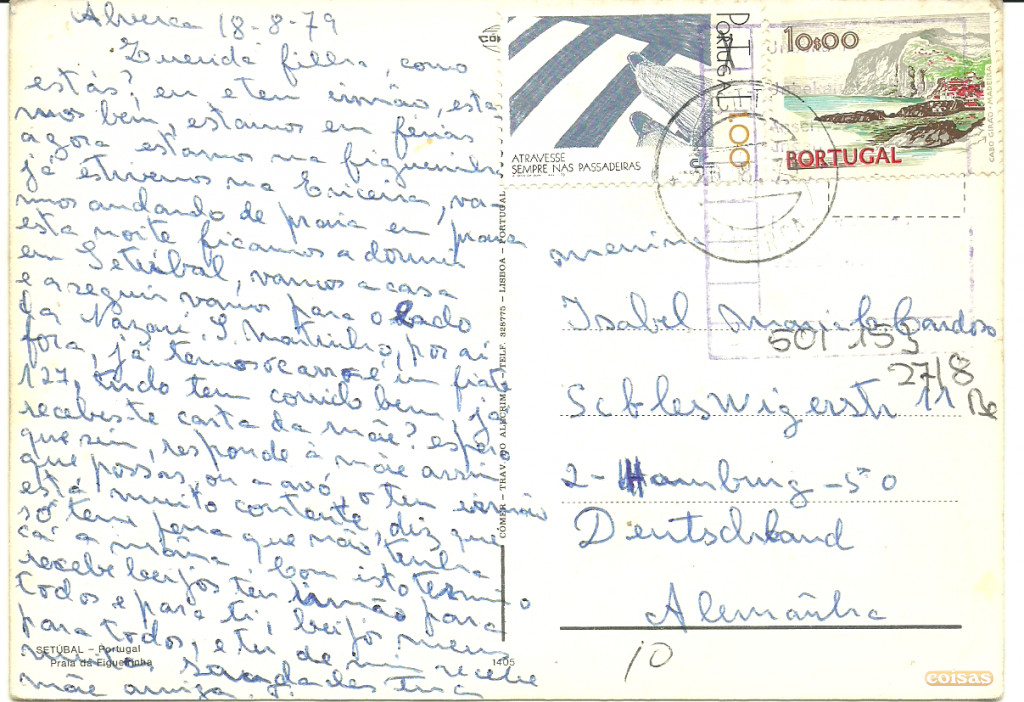 Alverca 18-8-79
Querida filha, como
estás? eu e teu irmão, esta
mos bem, estamos em férias
agora estamos na figueirinha
já estivemos na Ericeira, va-
mos andando de praia em praia
esta noite ficamos a dormir
em Setúbal, vamos a casa
e a seguir vamos para o lado
da Nazaré S. Martinho, por aí
fora, já temos o carro é um fiate
127, tudo tem corrido bem, já
recebeste carta da mãe? espero
que sim, responde à mãe assim
que possas, ou a avó, o teu irmão
está muito contente, diz que
só tem pena que não tenha
cá a mana, bom isto termino
recebe beijos teu irmão para
todos e para ti, beijos meus
para todos, e tu de mim recebe
muitas saudades tua
mãe amiga
SETÚBAL – Portugal
Praia da Figueirinha
1405
CÓMER - TRAV. DO ALECRIM, - TELF. 328775 - LISBOA - PORTUGAL
ATRAVESSE
SEMPRE NAS PASSADEIRAS
PORTUGAL 1.00
CTT
10$00
PORTUGAL
CABO GIRÃO MADEIRA
menina
Isabel Cardoso
501 153
27/8
Schleswigerstr 11
Be
2-Hamburg-50
Deutschland
Alemanha
10
coisas